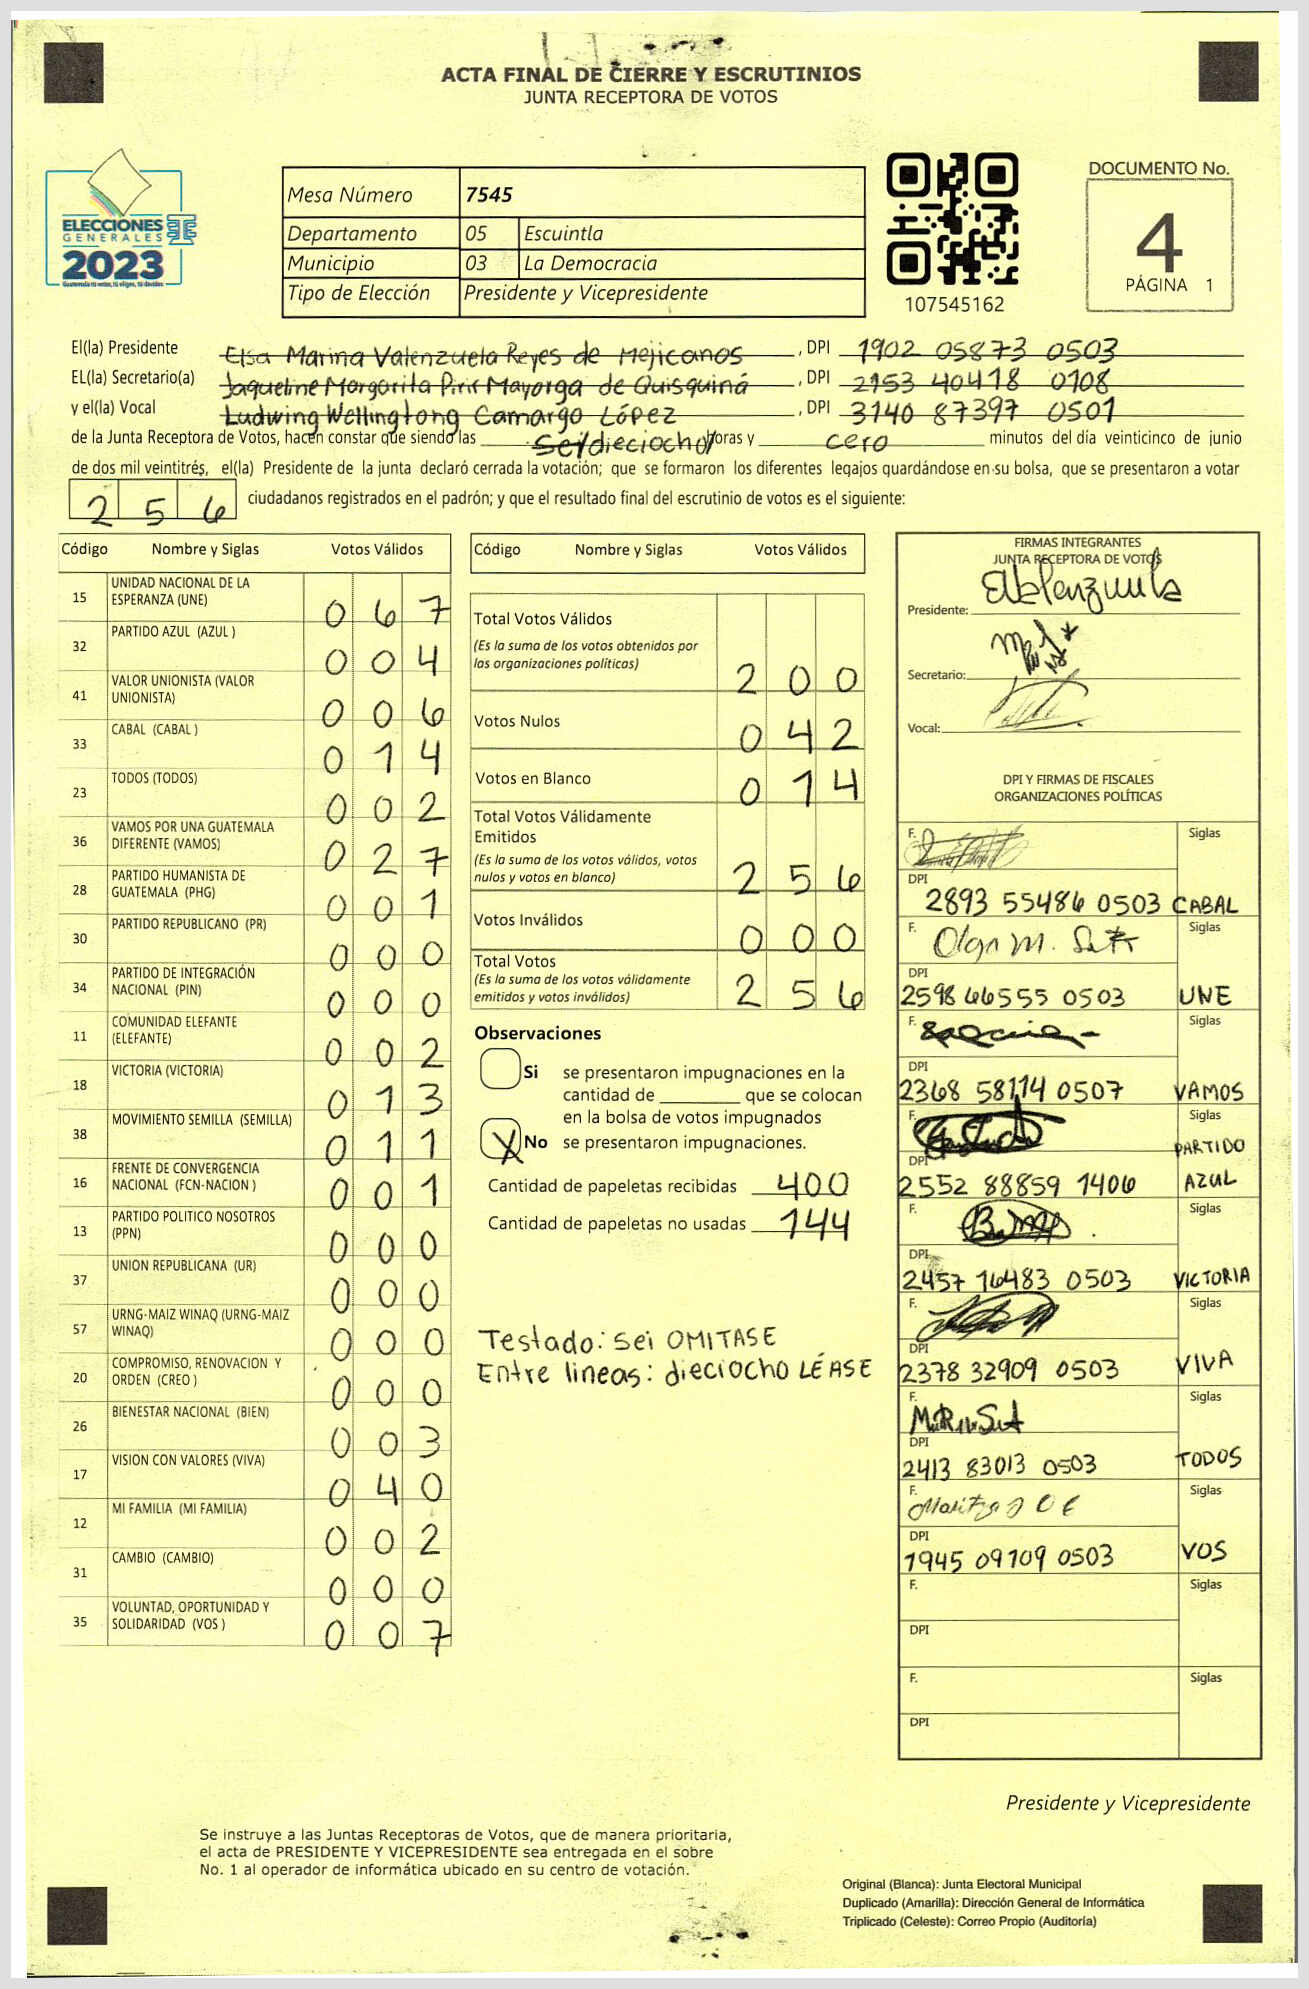 ACTA FINAL DE CIERRE Y ESCRUTINIOS
JUNTA RECEPTORA DE VOTOS
ELECCIONES
GENERALES
2023
Guatemala tú votas, tú eliges, tú decides
Mesa Número 7545
Departamento 05 Escuintla
Municipio 03 La Democracia
Tipo de Elección Presidente y Vicepresidente
107545162
DOCUMENTO No.
4
PÁGINA 1
El(la) Presidente Elsa Marina Valenzuela Reyes de Mejicanos, DPI 1902 05873 0503
EL(la) Secretario(a) Jaqueline Margarita Pirir Mayorga de Quisquiná, DPI 2153 40418 0108
y el(la) Vocal Ludwing Wellingtong Camargo López, DPI 3140 87397 0501
de la Junta Receptora de Votos, hacen constar que siendo las Sei/dieciocho/ horas y cero minutos del día veinticinco de junio
de dos mil veintitrés, el(la) Presidente de la junta declaró cerrada la votación; que se formaron los diferentes legajos guardándose en su bolsa, que se presentaron a votar
256 ciudadanos registrados en el padrón; y que el resultado final del escrutinio de votos es el siguiente:
Código Nombre y Siglas Votos Válidos
15 UNIDAD NACIONAL DE LA ESPERANZA (UNE) 067
32 PARTIDO AZUL (AZUL ) 004
41 VALOR UNIONISTA (VALOR UNIONISTA) 006
33 CABAL (CABAL ) 014
23 TODOS (TODOS) 002
36 VAMOS POR UNA GUATEMALA DIFERENTE (VAMOS) 027
28 PARTIDO HUMANISTA DE GUATEMALA (PHG) 001
30 PARTIDO REPUBLICANO (PR) 000
34 PARTIDO DE INTEGRACIÓN NACIONAL (PIN) 000
11 COMUNIDAD ELEFANTE (ELEFANTE) 002
18 VICTORIA (VICTORIA) 013
38 MOVIMIENTO SEMILLA (SEMILLA) 011
16 FRENTE DE CONVERGENCIA NACIONAL (FCN-NACION ) 001
13 PARTIDO POLITICO NOSOTROS (PPN) 000
37 UNION REPUBLICANA (UR) 000
57 URNG-MAIZ WINAQ (URNG-MAIZ WINAQ) 000
20 COMPROMISO, RENOVACION Y ORDEN (CREO ) 000
26 BIENESTAR NACIONAL (BIEN) 003
17 VISION CON VALORES (VIVA) 040
12 MI FAMILIA (MI FAMILIA) 002
31 CAMBIO (CAMBIO) 000
35 VOLUNTAD, OPORTUNIDAD Y SOLIDARIDAD (VOS ) 007
Código Nombre y Siglas Votos Válidos
Total Votos Válidos
(Es la suma de los votos obtenidos por
las organizaciones políticas) 200
Votos Nulos 042
Votos en Blanco 014
Total Votos Válidamente
Emitidos
(Es la suma de los votos válidos, votos
nulos y votos en blanco) 256
Votos Inválidos 000
Total Votos
(Es la suma de los votos válidamente
emitidos y votos inválidos) 256
Observaciones
Si se presentaron impugnaciones en la
cantidad de ________ que se colocan
en la bolsa de votos impugnados
X No se presentaron impugnaciones.
Cantidad de papeletas recibidas 400
Cantidad de papeletas no usadas 144
Testado: sei OMITASE
Entre lineas: dieciocho LÉASE
FIRMAS INTEGRANTES
JUNTA RECEPTORA DE VOTOS
Presidente:
Secretario:
Vocal:
DPI Y FIRMAS DE FISCALES
ORGANIZACIONES POLÍTICAS
F. Siglas
DPI
2893 55486 0503 CABAL
F. Siglas
DPI
2598 66555 0503 UNE
F. Siglas
DPI
2368 58114 0507 VAMOS
F. Siglas
DPI PARTIDO
2552 88859 1406 AZUL
F. Siglas
DPI
2457 16483 0503 VICTORIA
F. Siglas
DPI
2378 32909 0503 VIVA
F. Siglas
DPI
2413 83013 0503 TODOS
F. Siglas
DPI
1945 09109 0503 VOS
F. Siglas
DPI
F. Siglas
DPI
Presidente y Vicepresidente
Se instruye a las Juntas Receptoras de Votos, que de manera prioritaria,
el acta de PRESIDENTE Y VICEPRESIDENTE sea entregada en el sobre
No. 1 al operador de informática ubicado en su centro de votación.
Original (Blanca): Junta Electoral Municipal
Duplicado (Amarilla): Dirección General de Informática
Triplicado (Celeste): Correo Propio (Auditoría)